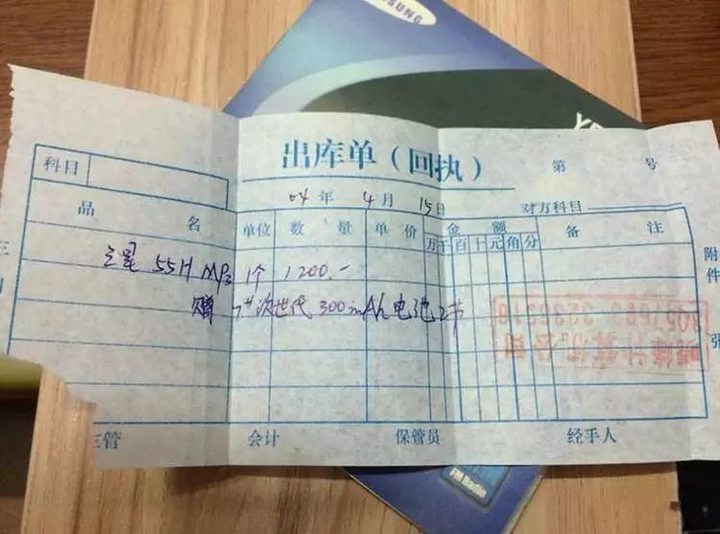 SUNG
出库单（回执）
第 号
科目
04 年 4 月 15 日 对方科目
品 名 单位 数 量 单 价 金 额 备 注
万 千 百 十 元 角 分
三星 55H MP3 1个 1200.-
赠 次世代 300mAh 电池 2节
附件
张
主管 会计 保管员 经手人
FM Radio